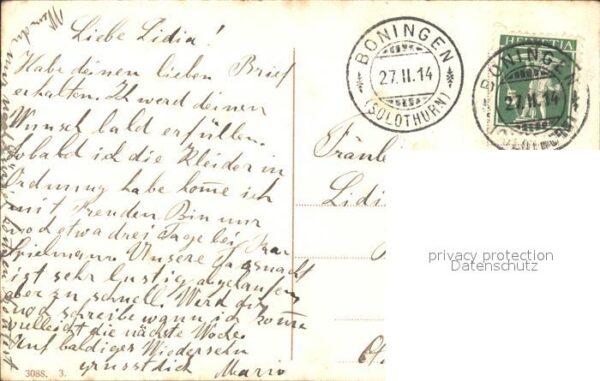 Liebe Lidia!
Habe deinen lieben Brief
erhalten. Ich werd deinen
Wunsch bald erfüllen.
Sobald ich die Kleider in
Ordnung habe kome ich
mit Freuden Bin nur
noch etwa drei Tage bei Frau
Spielmann. Unsere
ist sehr lustig abgelaufen
aber zu schnell. Werd dir
noch schreiben wann ich kome
vielleicht die nächste Woche.
Auf baldiges Wiedersehn
grüsst dich Mario
3088. 3.
BONINGEN
27.II.14
(SOLOTHURN)
HELVETIA
BONINGEN
27.II.14
(SOLOTHURN)
Fräulei
Lidi
privacy protection
Datenschutz